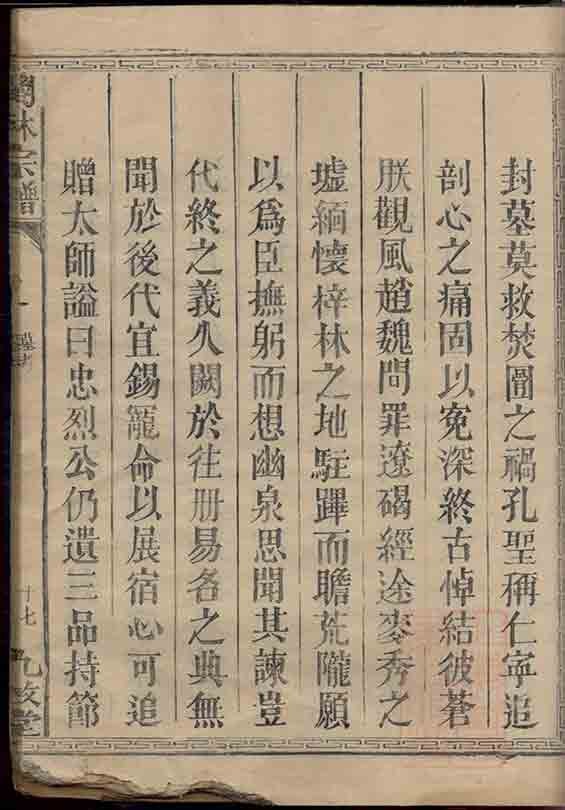 封墓莫救焚圖之禍孔聖稱仁寧追
剖心之痛固以寃深終古悼結彼蒼
朕觀風趙魏問罪遼碣經途麥秀之
墟緬懷梓林之地駐蹕而瞻荒隴願
以爲臣撫躬而想幽泉思聞其諫豈
代終之義久闕於往册易名之典無
聞於後代宜錫寵命以展宿心可追
贈太師諡曰忠烈公仍遣三品持節
林宗譜
十七
九牧堂